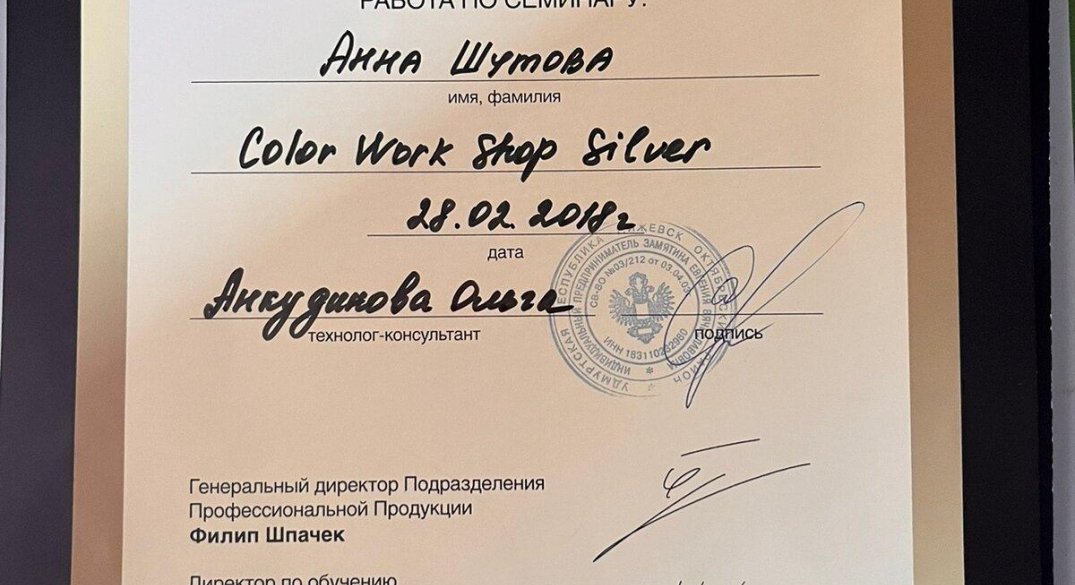 РАБОТА ПО СЕМИНАРУ:
Анна Шутова
имя, фамилия
Color Work Shop Silver
28.02.2018г
дата
Анкудинова Ольга
технолог-консультант
подпись
УДМУРТСКАЯ РЕСПУБЛИКА ИЖЕВСК ОКТЯБРЬСКИЙ РАЙОН
ИНДИВИДУАЛЬНЫЙ ПРЕДПРИНИМАТЕЛЬ ЗАМЯТИНА ЕВГЕНИЯ
СВ-ВО №03/212 от 03.04.
ИНН
Генеральный директор Подразделения
Профессиональной Продукции
Филип Шпачек
Директор по обучению